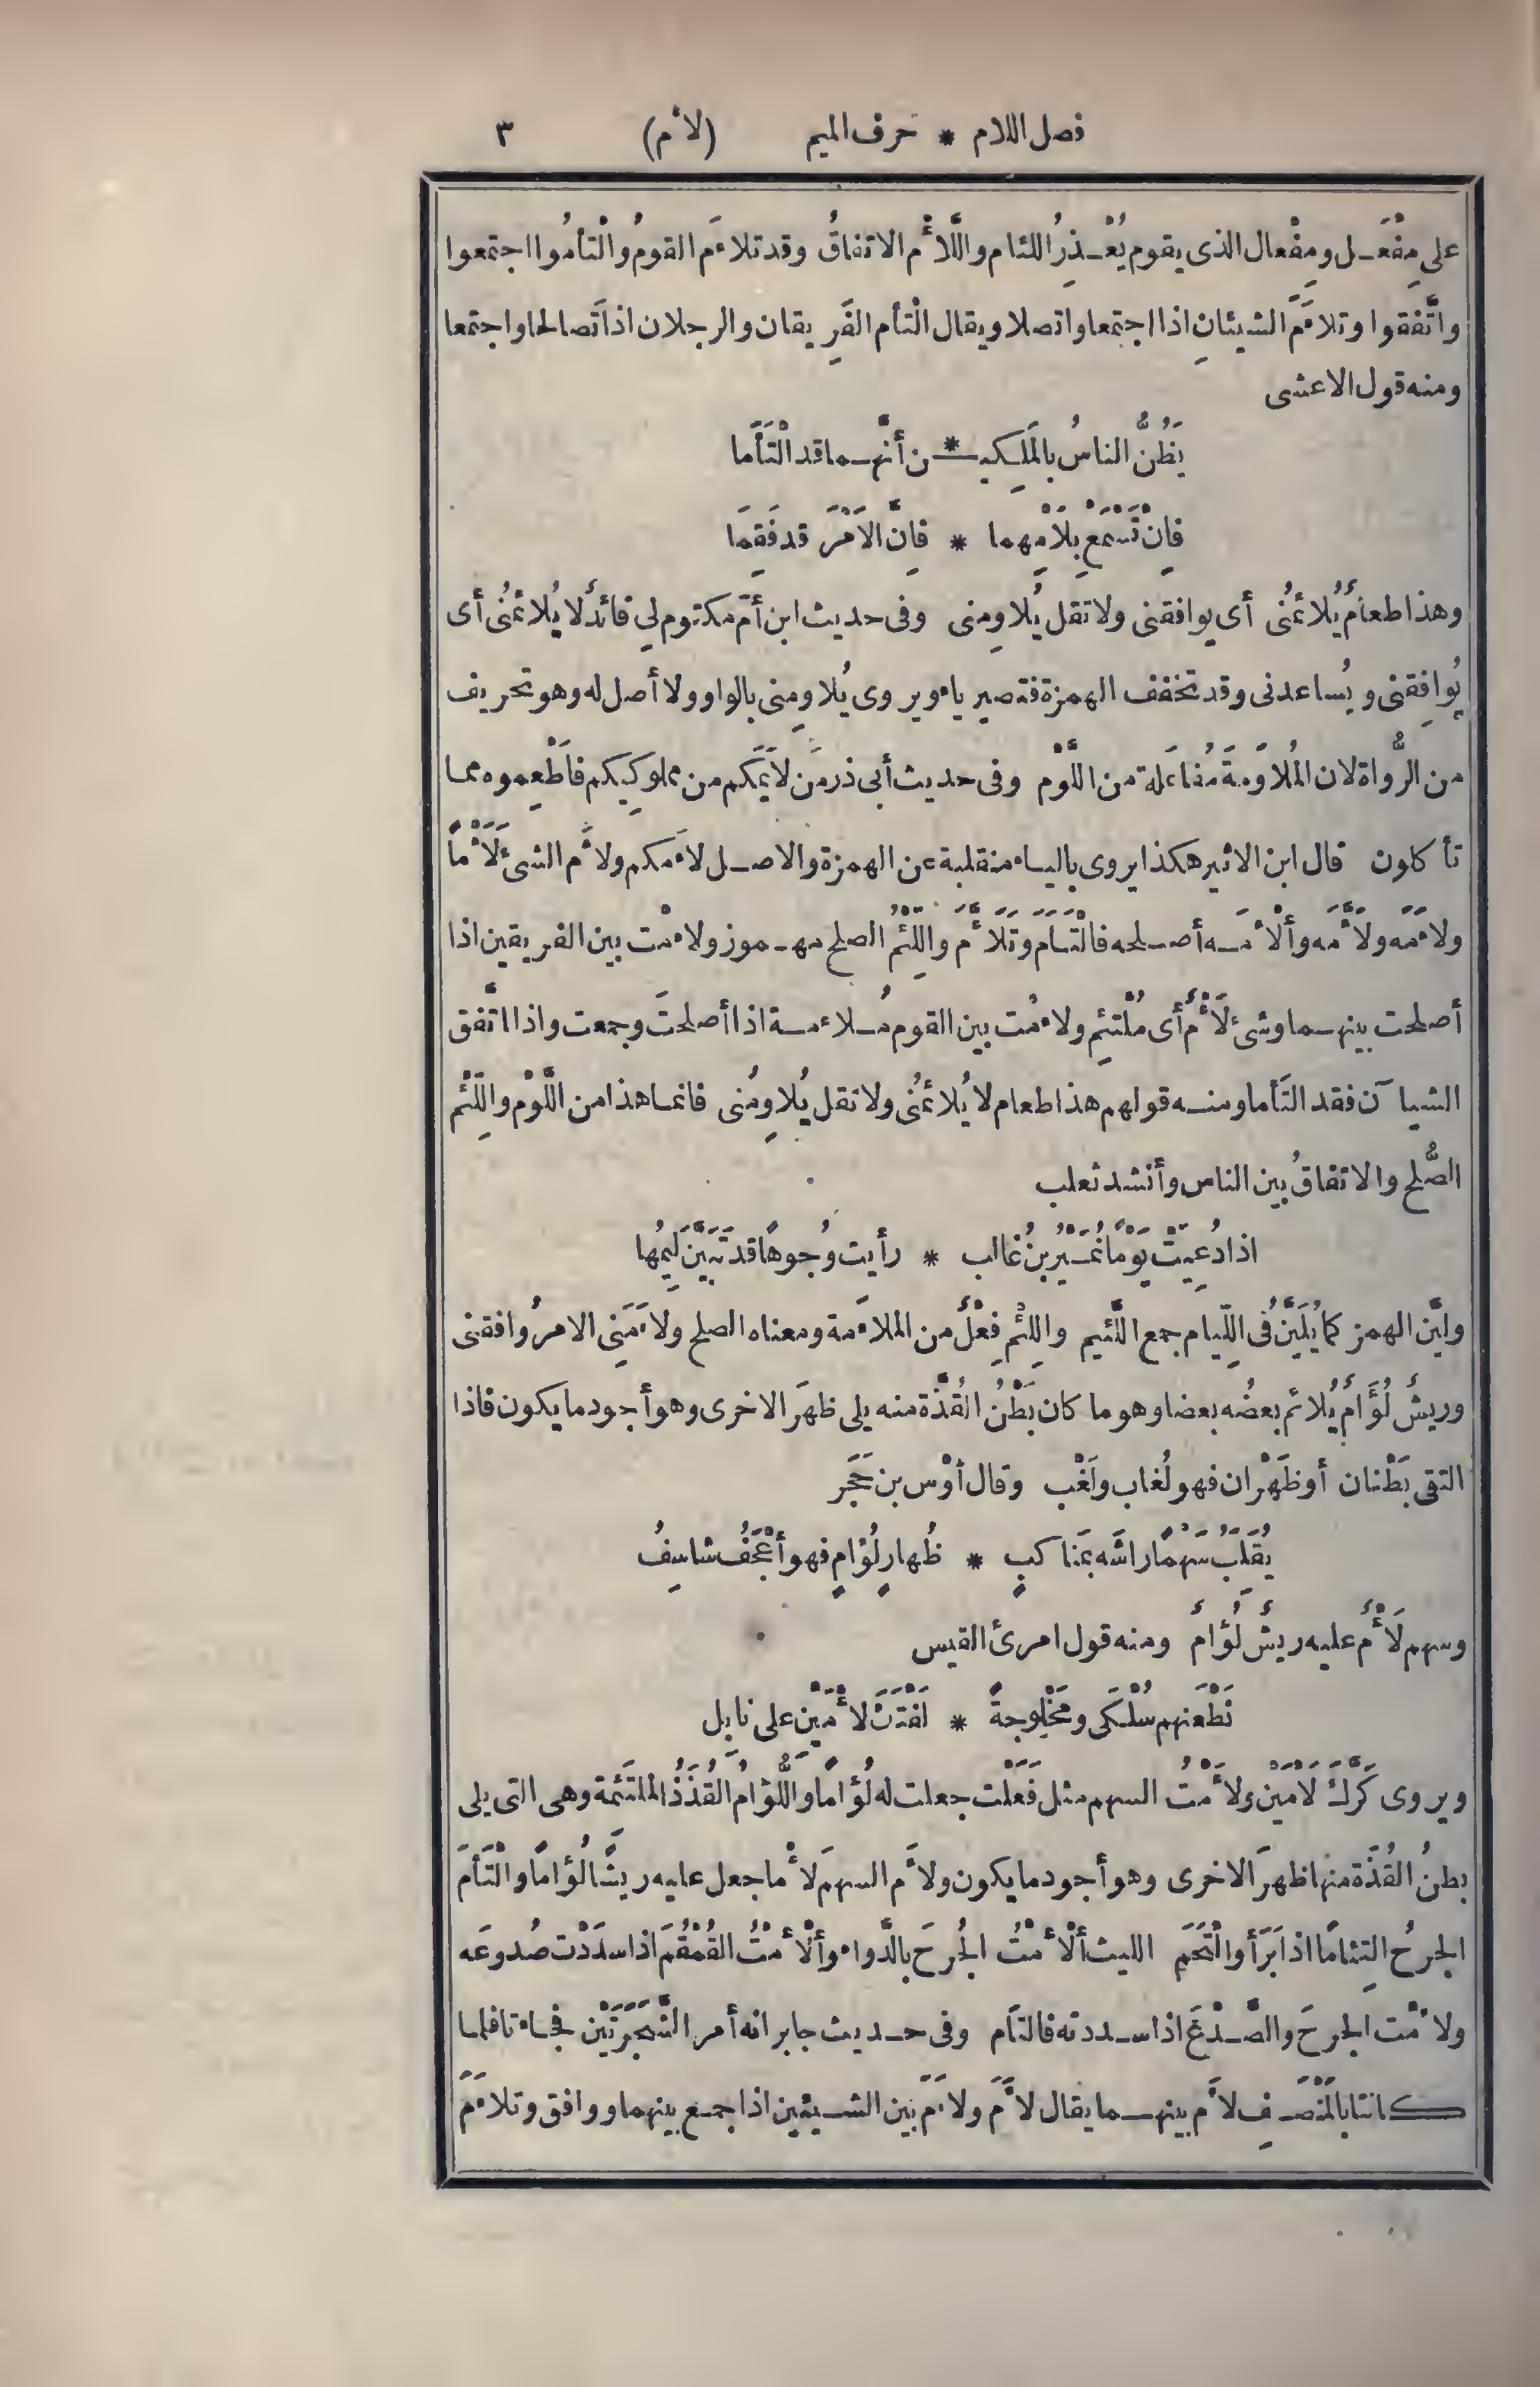 فصل اللام * حرف الميم (لأم) ٣
على مِفْعَل ومِفْعال الذى يقوم يُعْذِرُ اللئام واللَّأْم الاتفاقُ وقد تلاءَم القومُ والْتأمُوا اجتمعوا
واتَّفقوا وتلاءَمَ الشيئانِ اذا اجتمعا واتصلا ويقال الْتأم الفَرِيقان والرجلان اذا تَصالحا واجتمعا
ومنه قول الاعشى
يَظُنُّ الناسُ بالمَلِكيـ * ـن أنَّهما قد الْتَأَما
فاِنْ تَسْمَعْ بِلَأْمِهِما * فاِنَّ الاَمْرَ قد فَقِمَا
وهذا طعامٌ يُلائمُنى أى يوافقنى ولا تقل يُلاوِمنى وفى حديث ابن أمّ مكتوم لى قائدٌ لا يُلائمُنى أى
يُوافِقنى ويُساعدنى وقد تخفف الهمزة فتصير ياء ويروى يُلاوِمنى بالواو ولا أصل له وهو تحريف
من الرُّواة لان المُلاوَمةَ مُفاعَلة من اللَّوْم وفى حديث أبى ذر مَن لاَيَمَكم من مملوكِيكم فاَطْعِموه مما
تأكلون قال ابن الاثير هكذا يروى بالياء منقلبة عن الهمزة والاصل لاءَمكم ولأَم الشئَ لَأْماً
ولاءَمَه ولَأَّمَه وأَلْأَمَه أصلحه فالْتَأَمَ وتَلَأَّمَ واللِّئْمُ الصلح مهموز ولاءَمْت بين الفريقين اذا
أصلحت بينهما وشئ لَأْمٌ أى مُلْتئِم ولاءَمْت بين القوم مُلاءمة اذا أصلحتَ وجمعت واذا اتَّفق
الشيا آن فقد التَأَما ومنه قولهم هذا طعام لا يُلائمُنى ولا تقل يُلاوِمُنى فانما هذا من اللَّوْم واللِّئْم
الصُّلح والاتفاقُ بين الناس وأنشد ثعلب
اذا دُعِيَتْ يَوْمًا نُمَيْرُ بنُ غالب * رأيت وُجوهًا قد تَبَيَّنَ لِيمُها
وليَّن الهمز كما يُلَيَّنُ فى اللِّيام جمع اللَّئيم واللِّئْم فِعْلٌ من الملاءَمة ومعناه الصلح ولاءَمَنِى الامرُ وافقنى
وريشٌ لُؤَامٌ يُلائم بعضُه بعضا وهو ما كان بَطْنُ القُذَّة منه يلى ظهَر الاخرى وهو أجود ما يكون فاذا
التقى بَطْنان أو ظَهْران فهو لُغاب ولَغْب وقال أوْس بن حَجَر
يُقَلِّبُ سَهْمًا راشَه بمَناكبٍ * ظُهارٍ لُؤامٍ فهو أَعْجَفُ شاسِفُ
وسهم لَأْمٌ عليه ريشٌ لُؤامٌ ومنه قول امرئ القيس
نَطْعنهم سُلْكَى ومَخْلوجةً * لَفْتَكَ لَأْمَيْنِ على نابِل
ويروى كَرَّكَ لَأْمَيْنِ ولَأَمْتُ السهم مثل فَعَلْت جعلت له لُؤَاماً واللُّؤَامُ القُذَذُ الملتَئمة وهى التى يلى
بطنُ القُذَّة منها ظهرَ الاخرى وهو أجود ما يكون ولأَم السهمَ لأْما جعل عليه ريشًا لُؤَامًا والْتَأَمَ
الجرحُ الْتِئاماً اذا بَرَأَ والْتَحَم الليث أَلْأَمْتُ الجُرحَ بالدَّواء وأَلْأَمْتُ القُمْقُمَ اذا سدَدْت صُدوعَه
ولأَمْت الجرحَ والصَّدْعَ اذا سددته فالتأَم وفى حديث جابر انه أمر الشَّجَرَتَيْن فجاءتا فلما
كانتا بالمَنْصَفِ لأَم بينهما يقال لأَمَ ولاءَمَ بين الشيئين اذا جمع بينهما ووافق وتلاءَمَ